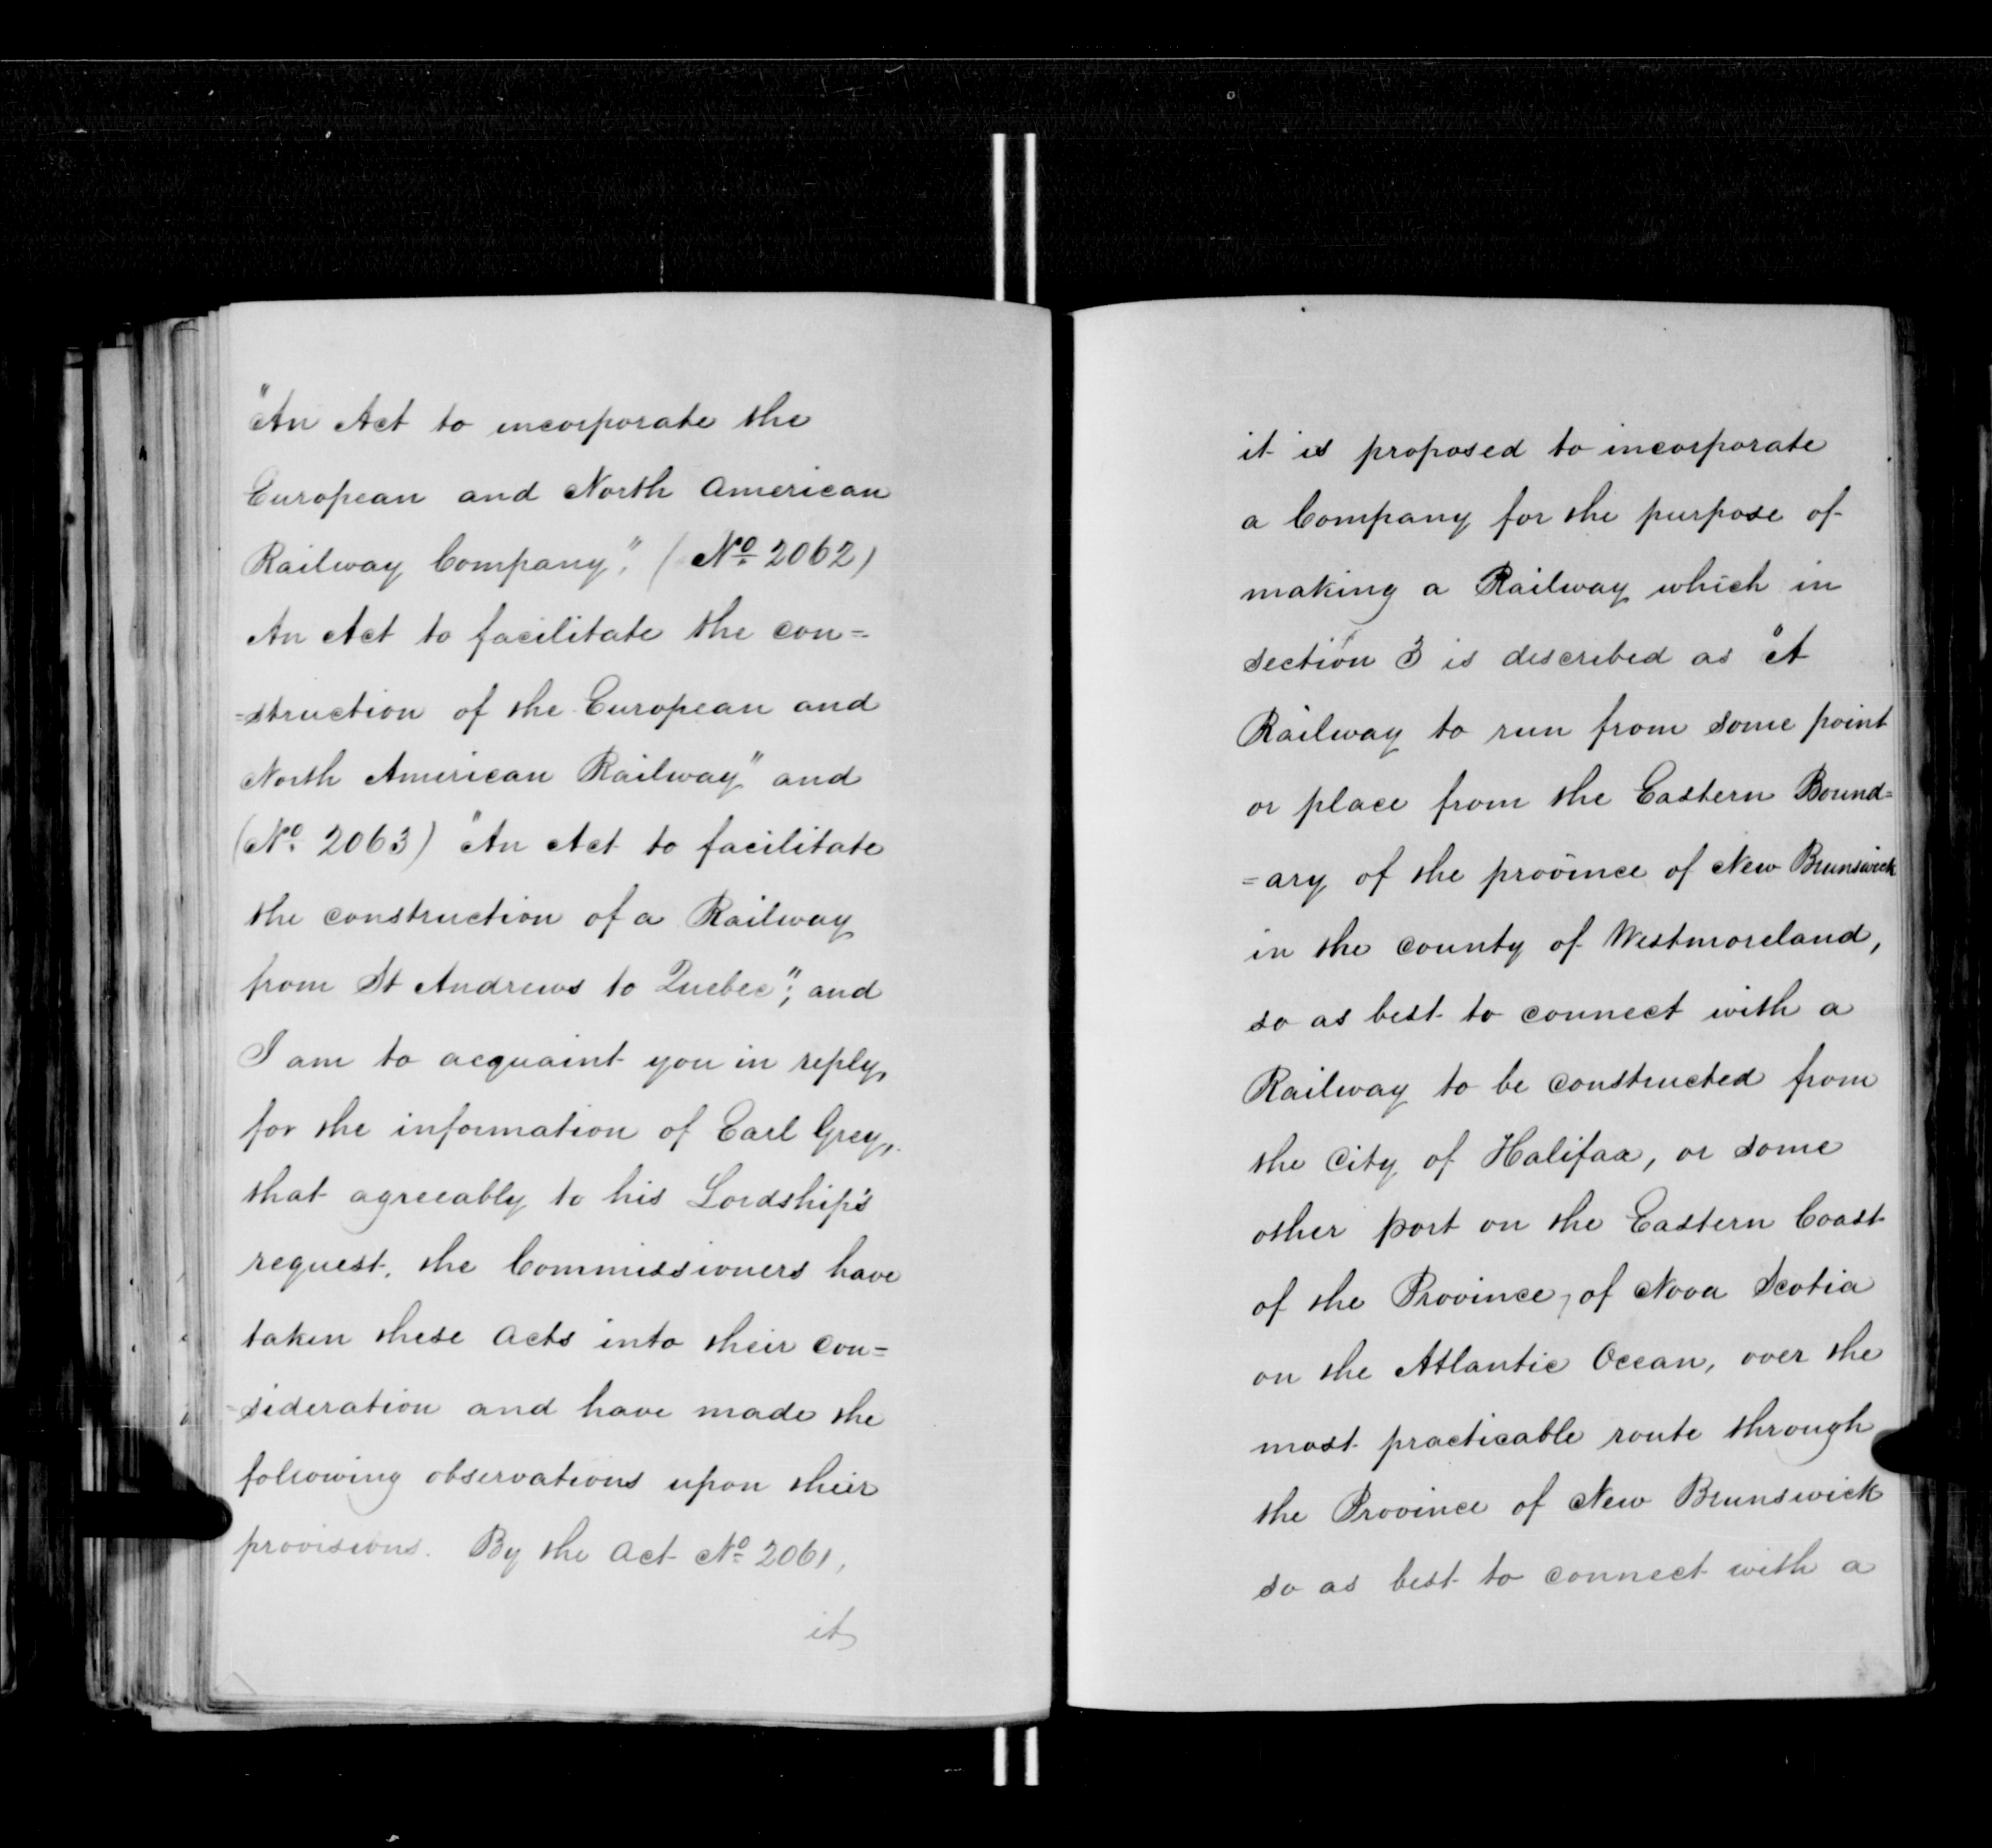 "An Act to incorporate the
European and North American
Railway Company", (No. 2062)
An Act to facilitate the con=
=struction of the European and
North American Railway" and
(No. 2063) "An Act to facilitate
the construction of a Railway
from St Andrews to Quebec"; and
I am to acquaint you in reply,
for the information of Earl Grey,
that agreeably to his Lordship's
request, the Commissioners have
taken these Acts into their con=
=sideration and have made the
following observations upon their
provisions. By the Act No. 2061,
it
it is proposed to incorporate
a Company for the purpose of
making a Railway which in
section 3 is described as "A
Railway to run from some point
or place from the Eastern Bound=
=ary of the province of New Brunswick
in the county of Westmoreland,
so as best to connect with a
Railway to be constructed from
the City of Halifax, or some
other port on the Eastern Coast
of the Province, of Nova Scotia
on the Atlantic Ocean, over the
most practicable route through
the Province of New Brunswick
so as best to connect with a